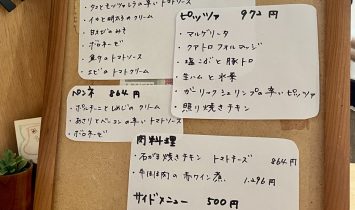 ・ナスとモッツァレラの辛いトマトソース
・イカと明太子のクリーム
・甘えびのみそ
・ボロネーゼ
・魚介のトマトソース
・エビのトマトクリーム
ピッツァ 972円
・マルゲリータ
・クアトロフォルマッジ
・塩こうじと豚トロ
・生ハムと水菜
・ガーリックシュリンプの辛いピッツァ
・照り焼きチキン
ペンネ 864円
・ポルチーニとしめじのクリーム
・あさりとベーコンの辛いトマトソース
・ボロネーゼ
肉料理
・石がま焼きチキン トマトチーズ 864円
・牛ほほ肉の赤ワイン煮 1,296円
サイドメニュー 500円